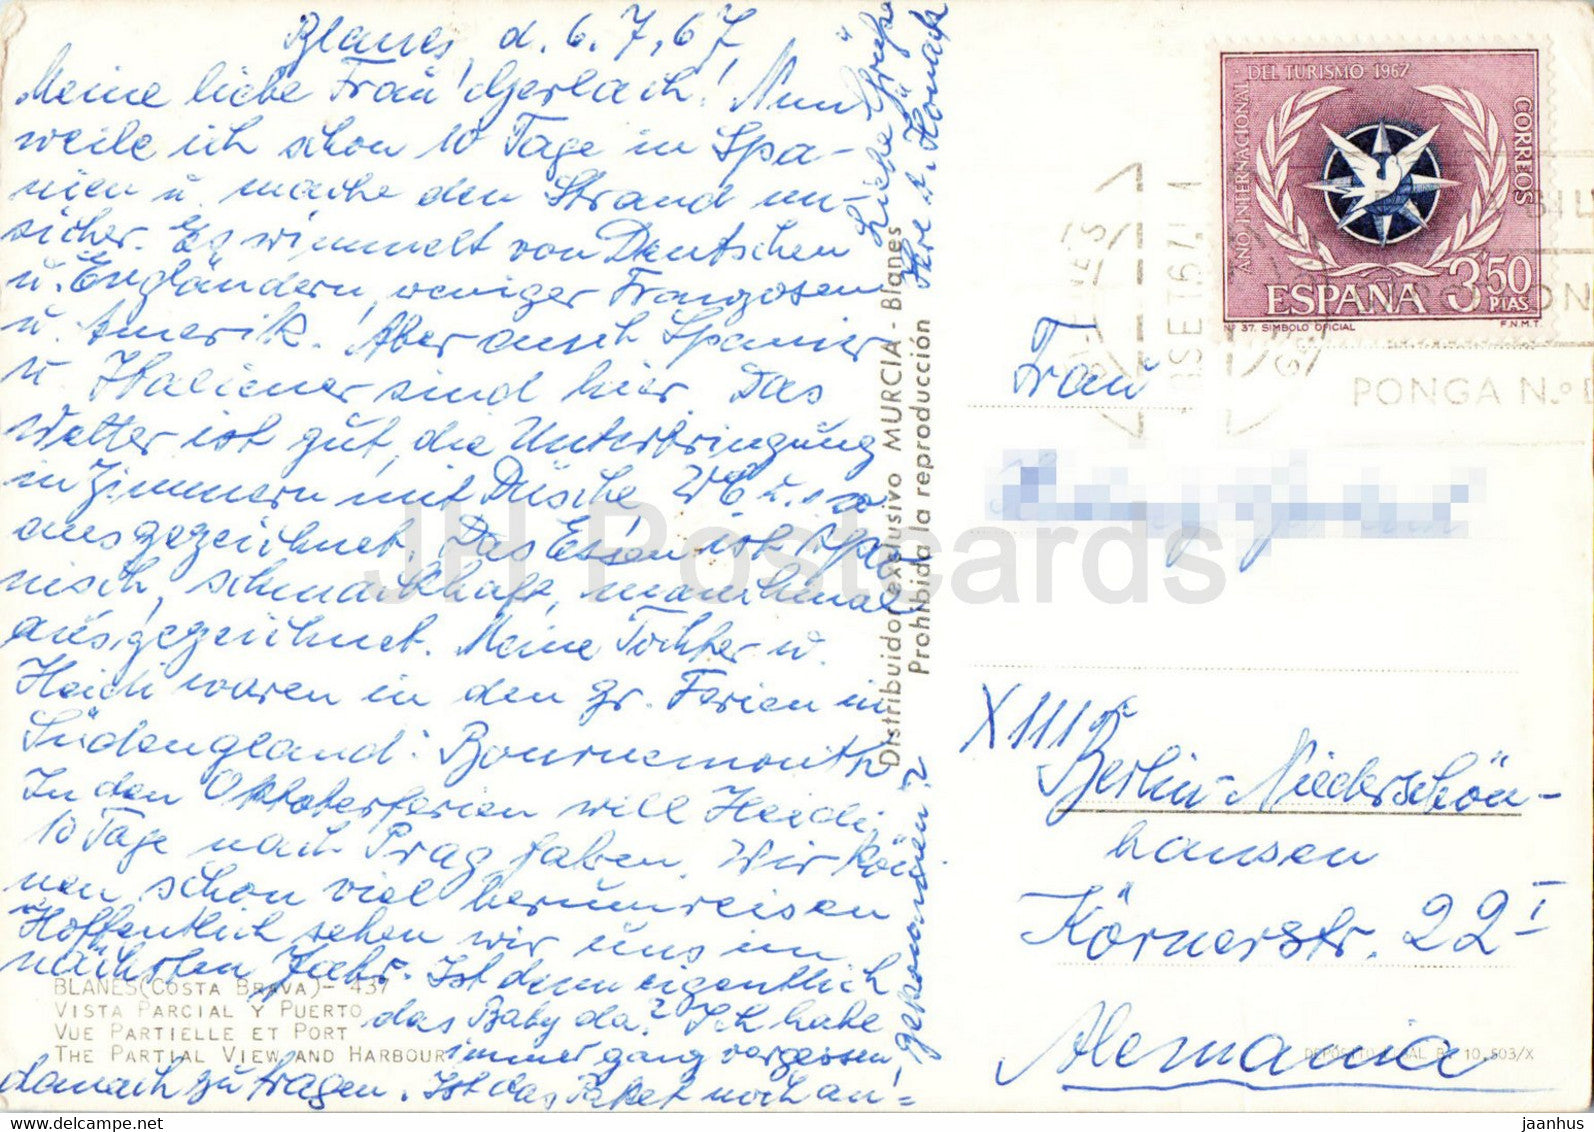 Blanes, d. 6.7.67
Meine liebe Frau Gerlach! Nun
weile ich schon 10 Tage in Spa-
nien u. mache den Strand un-
sicher. Es wimmelt von Deutschen
u. Engländern, weniger Franzosen
u. Amerik. Aber auch Spanier
u. Italiener sind hier. Das
Wetter ist gut, die Unterbringung
in Zimmern mit Dusche, WC u. so
ausgezeichnet. Das Essen ist spa
nisch, schmackhaft, manchmal
ausgezeichnet. Meine Tochter u.
Heidi waren in den gr. Ferien in
Südengland: Bournemouth
In den Oktoberferien will Heidi
10 Tage nach Prag fahren. Wir kön
nen schon viel herumreisen
Hoffentlich sehen wir uns im
nächsten Jahr. Ist denn eigentlich
das Baby da? Ich habe
immer ganz vergessen,
danach zu fragen. Ist das Paket noch an-
gekommen?
Liebe Grüße
Ihre
BLANES (COSTA BRAVA) - 437
VISTA PARCIAL Y PUERTO
VUE PARTIELLE ET PORT
THE PARTIAL VIEW AND HARBOUR
Distribuidor exclusivo MURCIA - Blanes
Prohibida la reproducción
AÑO INTERNACIONAL DEL TURISMO 1967
CORREOS
ESPAÑA 3'50 PTAS
Nº 37. SIMBOLO OFICIAL
F.N.M.T.
PONGA N.º D
Frau
X 1115
Berlin-Niederschön-
hausen
Körnerstr. 22 I
Alemania
DEPÓSITO LEGAL B. 10.503/X
JH Postcards
jaanhus
www.delcampe.net